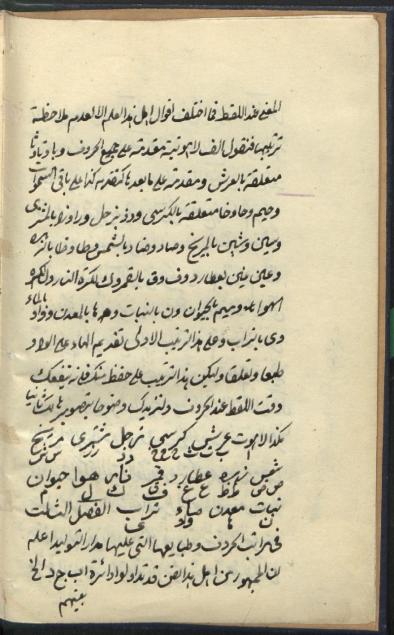 المغنى عند اللقط فما اختلف اقوال اهل هذا العلم الا لعدم ملاحظة
ترتيبها فنقول الف لاهوتية مقدمة على جميع الحروف وبا وتا وثا
متعلقة بالعرش ومقدمة على ما بعدها كتقدمه كذا على باقى السموات
وجيم وحا وخا متعلقة بالكرسى ودذ بزحل وراوزا بالمشترى
وسين وشين بالمريخ وصاد وضاد بالشمس وطا وظا بالزهره
وعين غين بعطارد وف وق بالقمر وك لكرة النار ول لكرة
الهواء وميم بالحيوان ون بالنبات وها بالمعدن وواو بالماء
وى بتراب وعلى هذا الترتيب الاولى تقديم الهاء على الواو
طبعا وتعلقا وليكن هذا الترتيب على حفظ منك فانه ينفعك
وقت اللقط عند الحروف ولنزيدك وضوحا بتصويرها لك ثانيا
هكذا لاهوت عرش كرسى زحل مشترى مريخ
شمس زهره عطارد قمر نار هوا حيوان
نبات معدن ماء تراب الفصل الثالث
فى مراتب الحروف وطبايعها التى عليها مدار التوليد اعلم
ان الجمهور من اهل هذا الفن قد تداولوا دائرة اب ج د الخ
بينهم